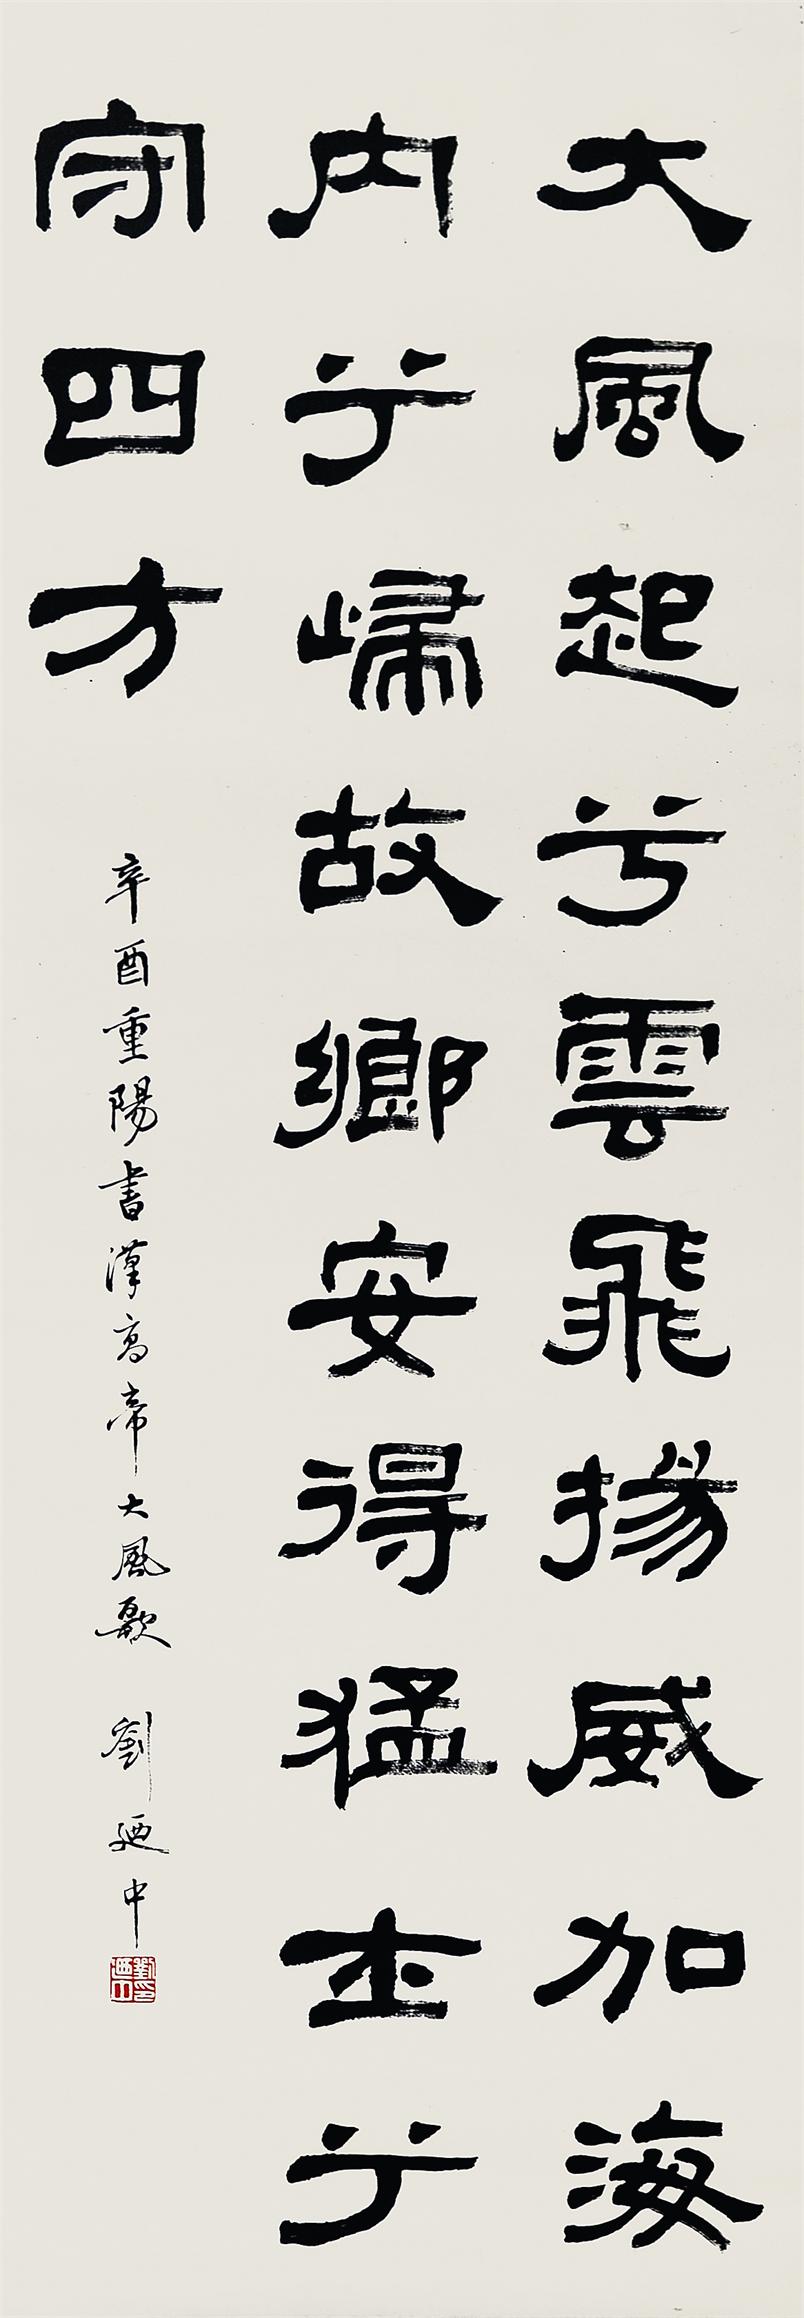 大風起兮雲飛揚威加海
内兮歸故鄉安得猛士兮
守四方
辛酉重陽書漢高帝大風歌 劉廼中